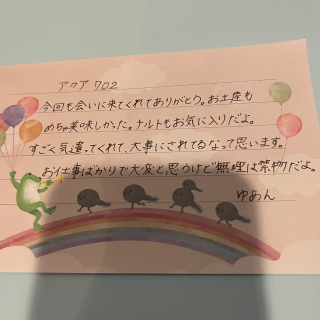 アクア 702
今回も会いに来てくれてありがとう。お土産も
めちゃ美味しかった。ナルトもお気に入りだよ。
すごく気遣ってくれて、大事にされてるなって思います。
お仕事ばかりで大変と思うけど無理は禁物だよ。
ゆあん